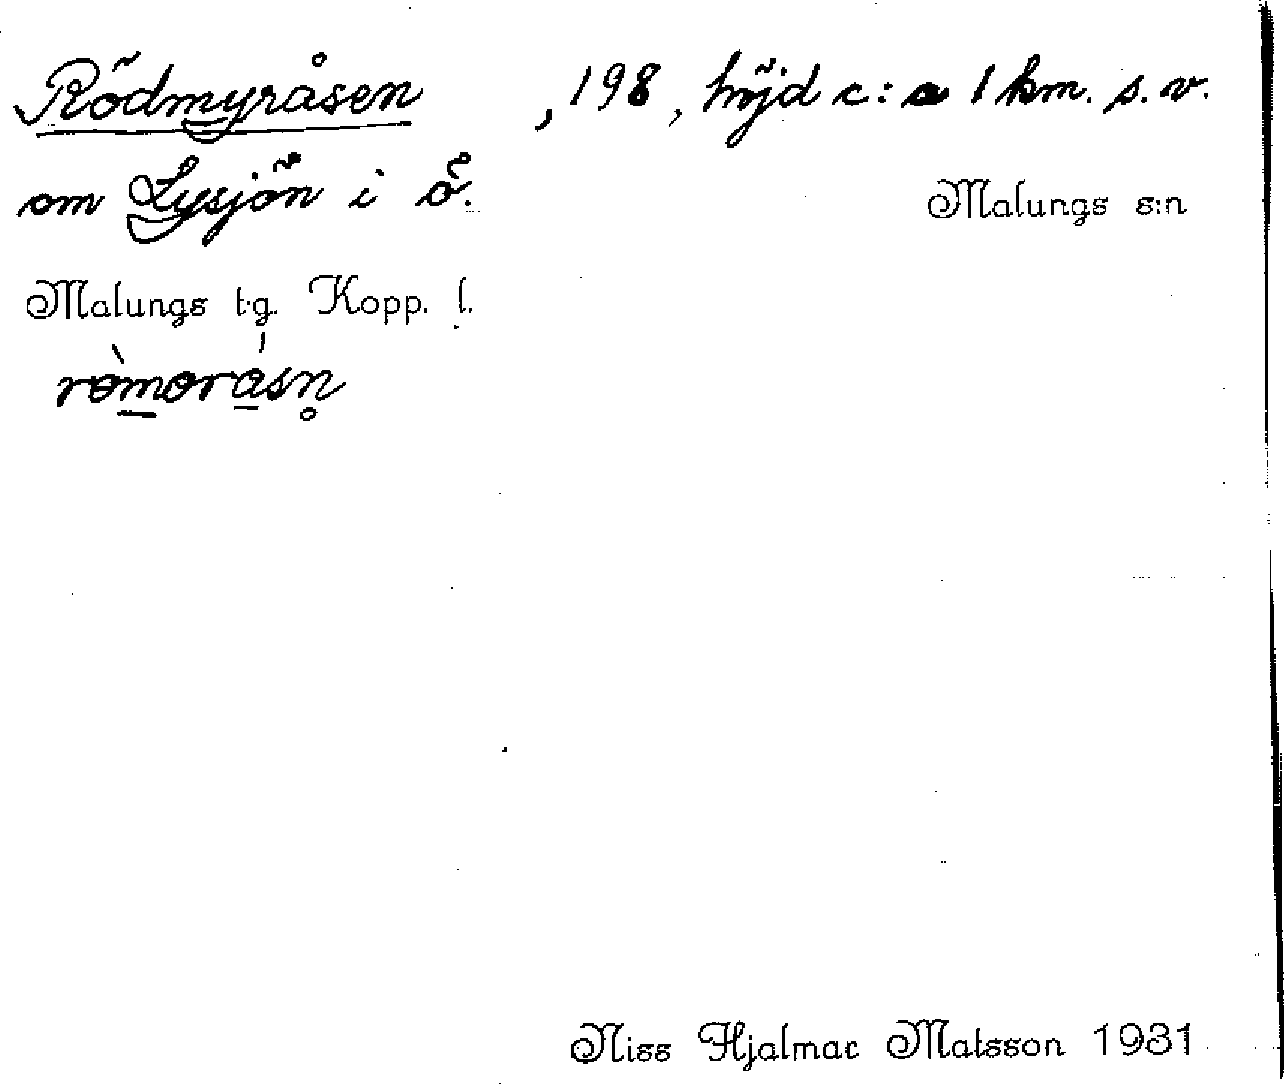 Rödmyråsen , 198, höjd c:a 1 km. s.v.
om Lysjön i ö.
Malungs s:n
Malungs t:g. Kopp. l.
ròmoråsn̥
Niss Hjalmar Matsson 1931